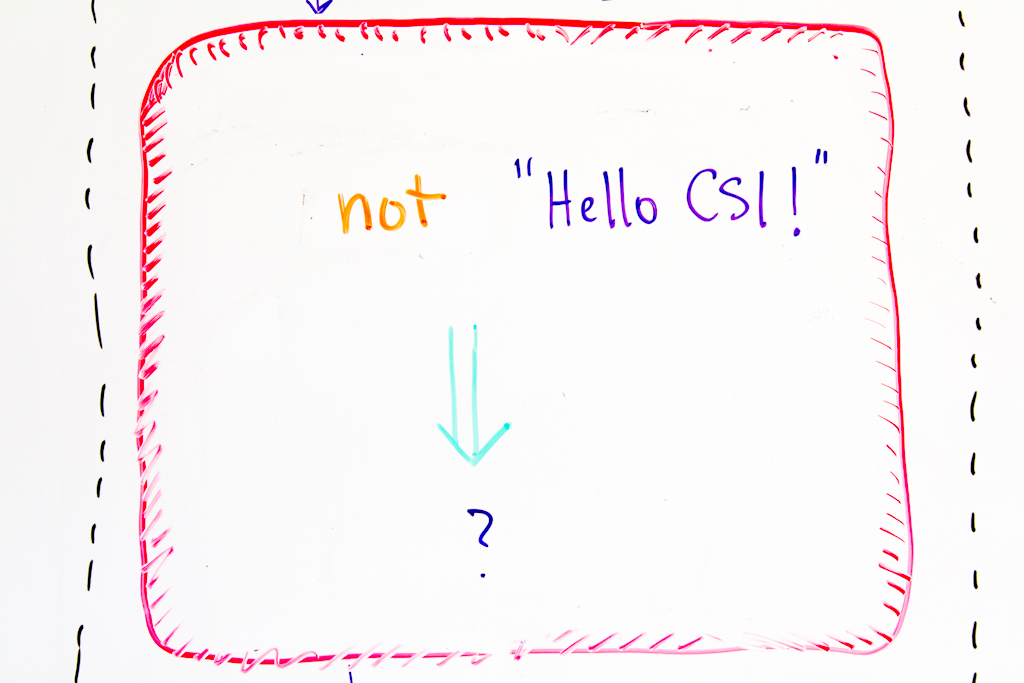 not "Hello CSI!"
?